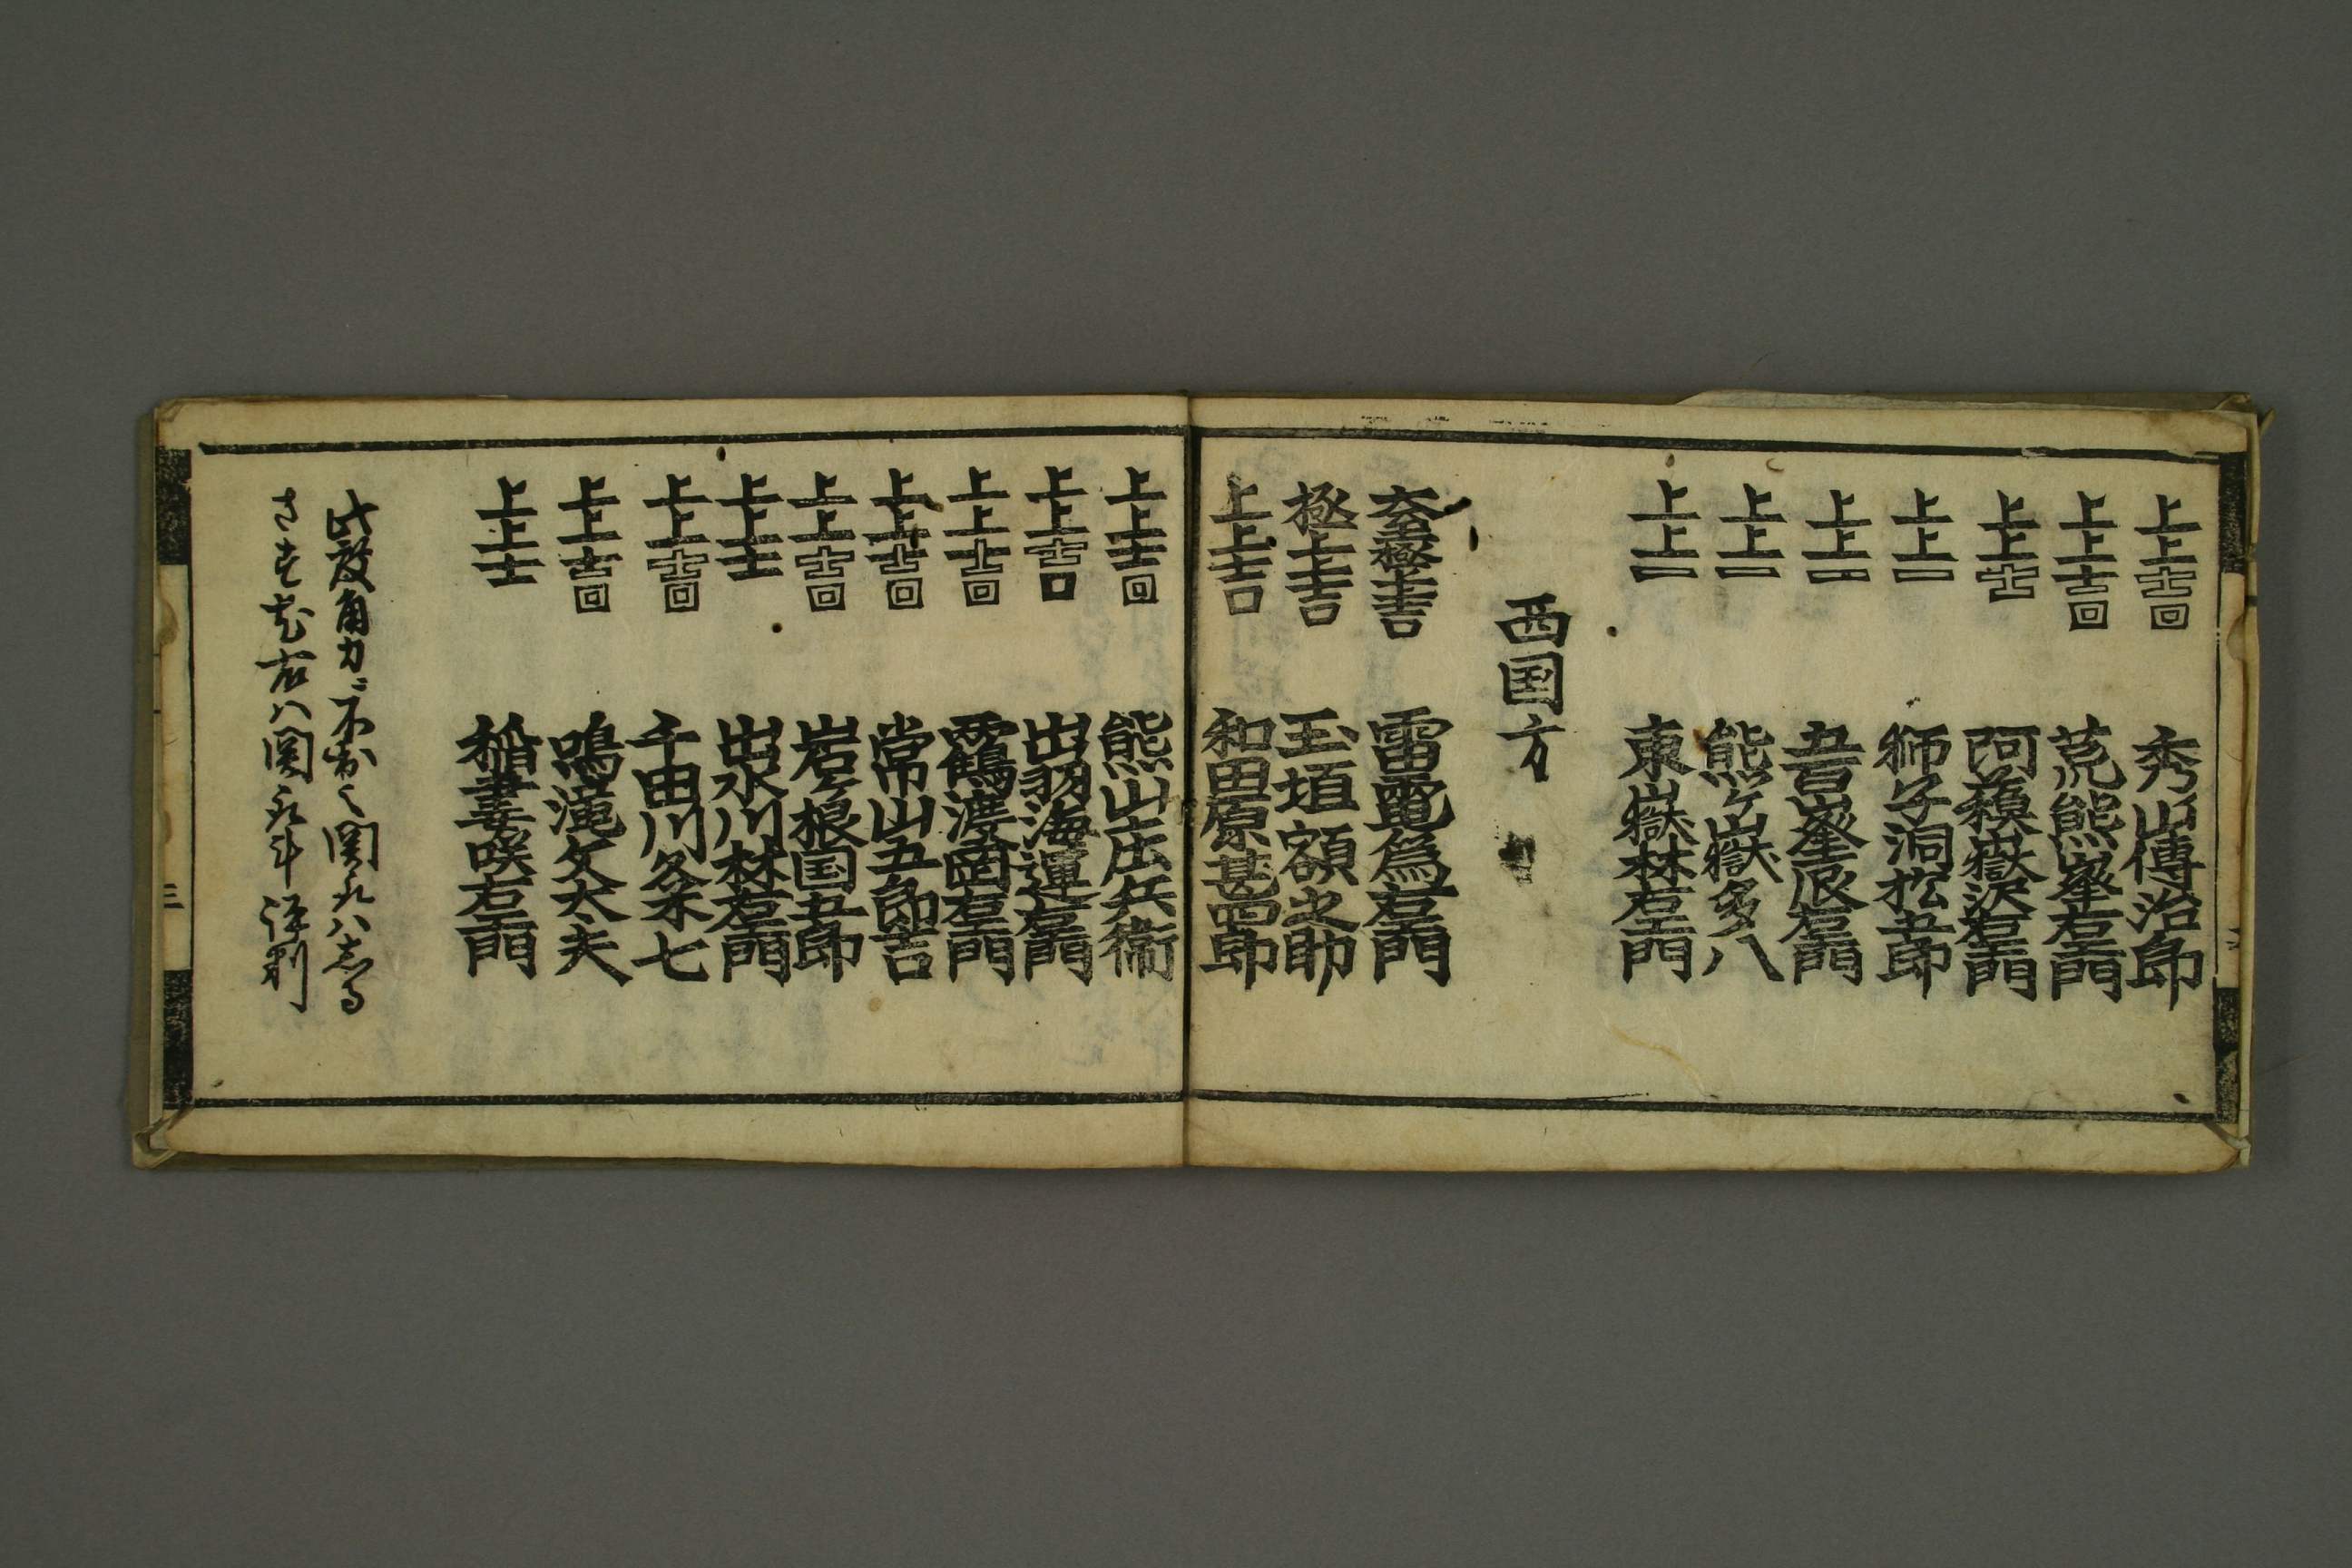 上上吉 秀山傳治郎
上上吉 荒熊峯右エ門
上上士 阿蘓嶽沢右エ門
上上一 獅子洞松五郎
上上一 吾妻峯辰右エ門
上上一 熊ヶ嶽多八
上上一 東嶽林右エ門
西国方
大至極上上吉 雷電為右エ門
極上上吉 玉垣額之助
上上吉 和田原甚四郎
上上吉 熊山庄兵衛
上上吉 出羽海運右エ門
上上吉 靏渡団右エ門
上上吉 常山五郎吉
上上吉 岩ヶ根国五郎
上上士 出水川林右エ門
上上吉 千田川久米七
上上吉 鳴滝文太夫
上上士 稲妻咲右エ門
此段角力ニ不出
関
三